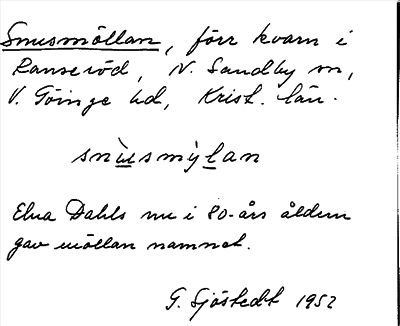 Snusmöllan, förr kvarn i
Ranseröd, N. Sandby sn,
V. Göinge hd, Krist. län.
snùusmỳlan
Elna Dahls nu i 80-års åldern
gav möllan namnet.
G. Sjöstedt 1952